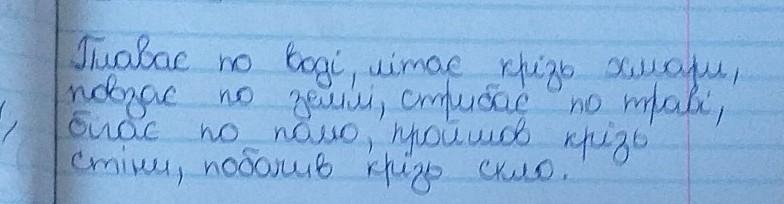 Плаває по воді, літає крізь хмари,
повзає по землі, стрибає по траві,
бігає по полю, пройшов крізь
стіни, побачив крізь скло.